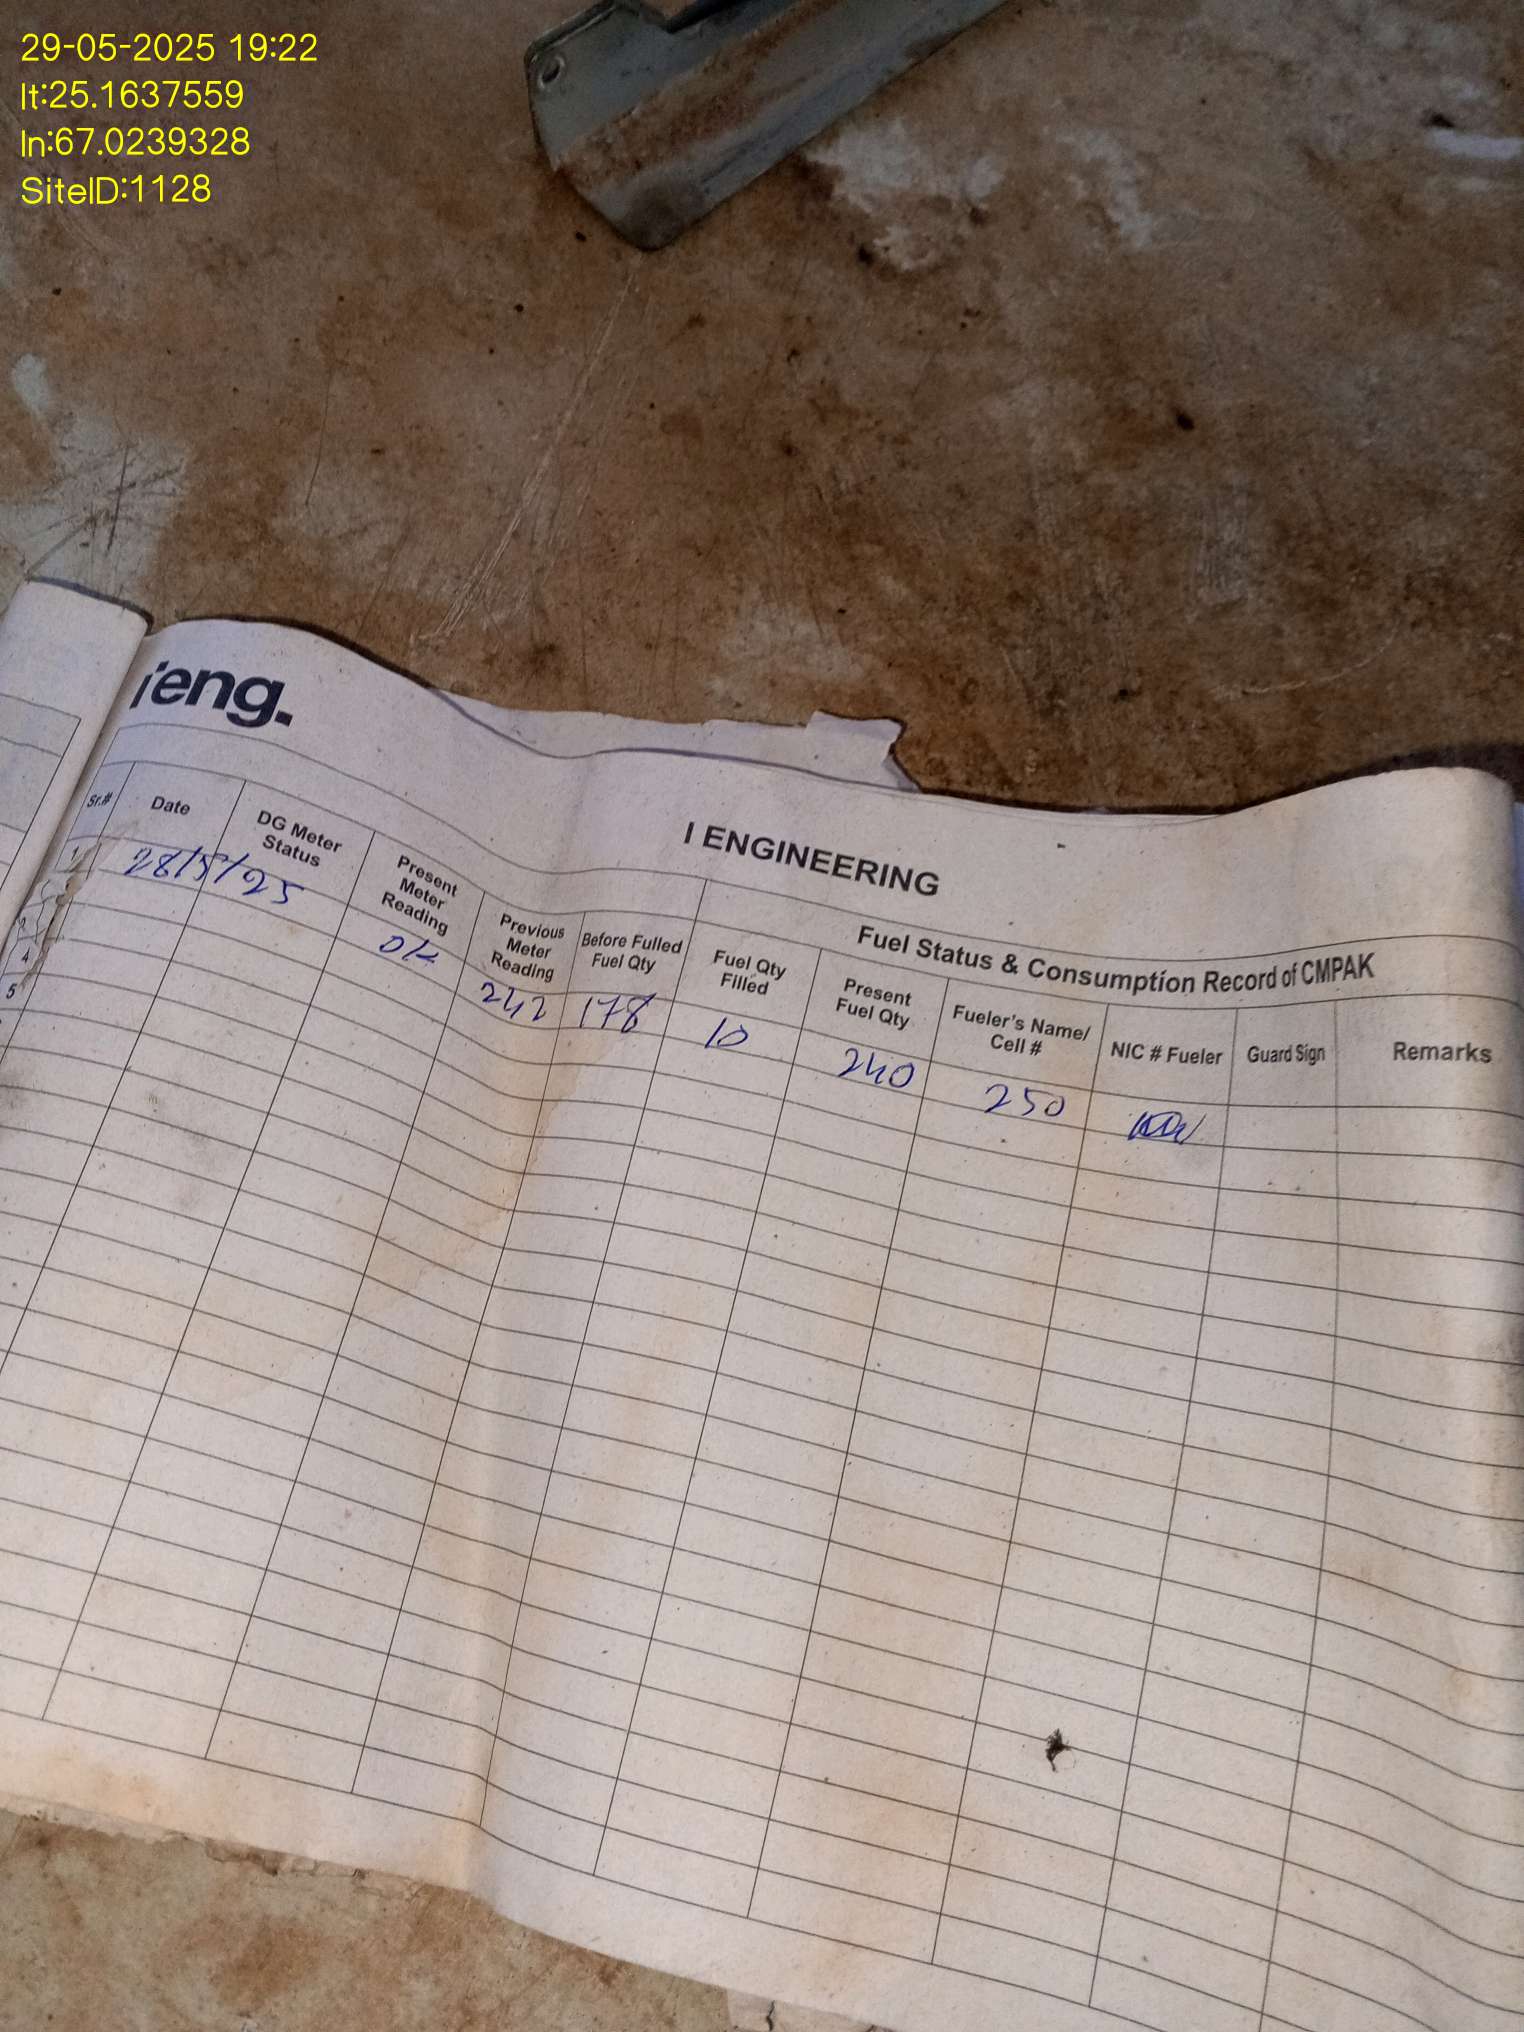 29-05-2025 19:22
lt:25.1637559
ln:67.0239328
SiteID:1128
ieng.
I ENGINEERING
Fuel Status & Consumption Record of CMPAK
Sr.# Date DG Meter Status Present Meter Reading Previous Meter Reading Before Fulled Fuel Qty Fuel Qty Filled Present Fuel Qty Fueler's Name/ Cell # NIC # Fueler Guard Sign Remarks
1 28/5/25 OK 242 178 10 240 250
4
5